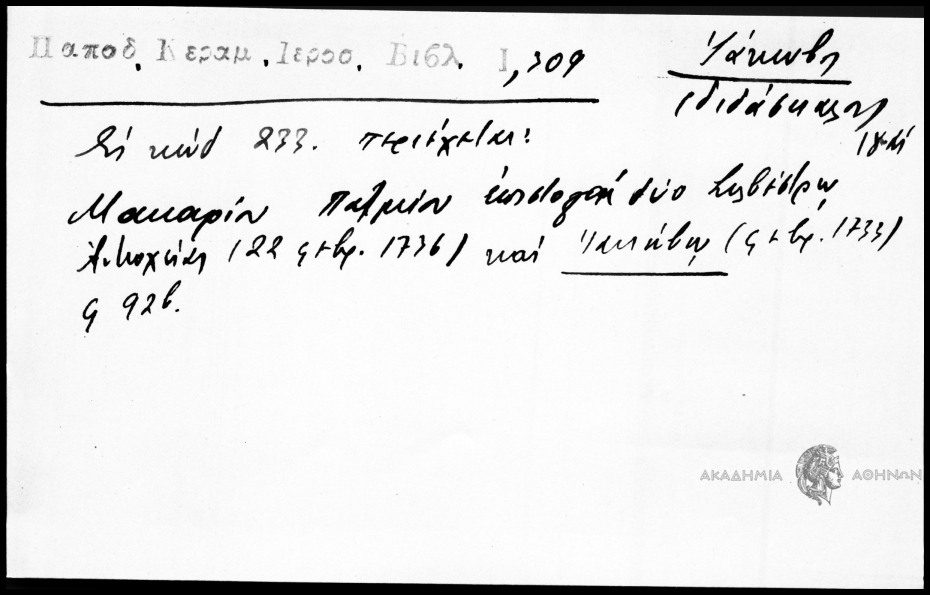 Παποδ. Κεραμ. Ιεροσ. Βιβλ. I, 309
Ἰάκωβος
(διδάσκαλος)
18 αἰ
Ἐν κώδ 233. περιέχεται:
Μακαρίου Πατμίου ἐπιστολαί δύο Σιλβέστρῳ
Ἀντιοχείας (22 9βρ. 1736) καί Ἰακώβῳ (9βρ. 1733)
φ 92β.
ΑΚΑΔΗΜΙΑ ΑΘΗΝΩΝ